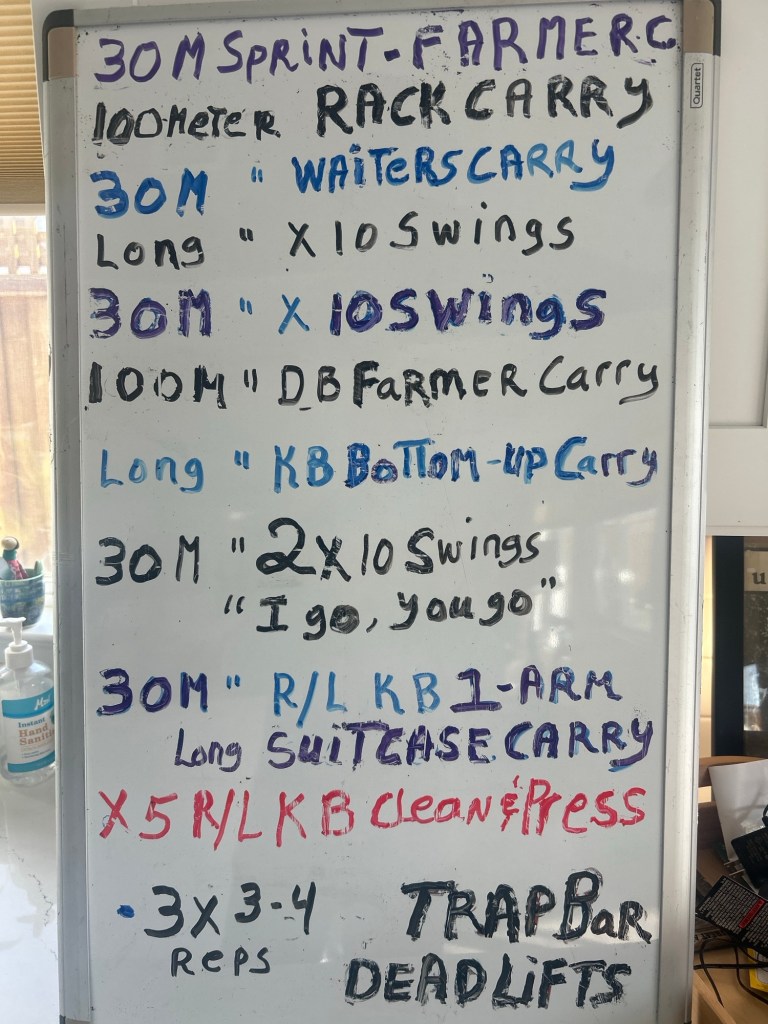 30M SPRINT-FARMERC
Quartet
100METER RACK CARRY
30M " WAITERS CARRY
Long " X 10 Swings
30M " X 10 SWings
100M " DB FARMER Carry
Long " KB BOTTOM-UP Carry
30M " 2X10 Swings
"I go, you go"
30M " R/L KB 1-ARM
Long SUITCASE CARRY
X 5 R/L KB Clean & Press
• 3X 3-4 TRAP BAR
Reps
DEADLIFTS
Instant
Hand
u